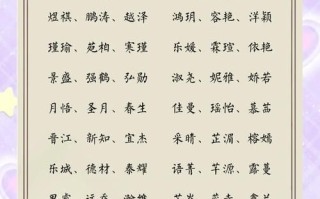 煜棋、鹏涛、越泽 鸿玥、容艳、洋颖
瑾瑜、苑柏、寒瑾 乐媛、霖瑄、依艳
景盛、强鹤、弘勋 淑尧、妮雅、娇若
月悟、圣月、春生 佳曼、瑶怡、慕茁
晋江、新知、宜杰 采晴、芷湄、榕嫣
乐城、德材、泰耀 语菁、芊源、露蔓